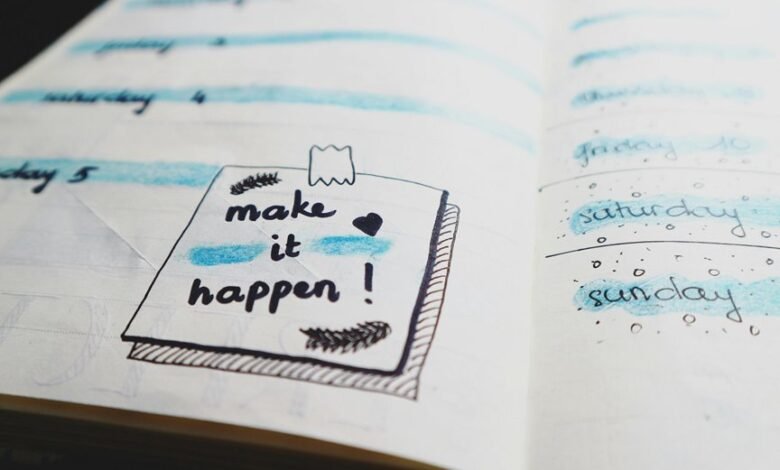 saturday 4
day 5
make
it
happen!
friday 10
saturday
sunday